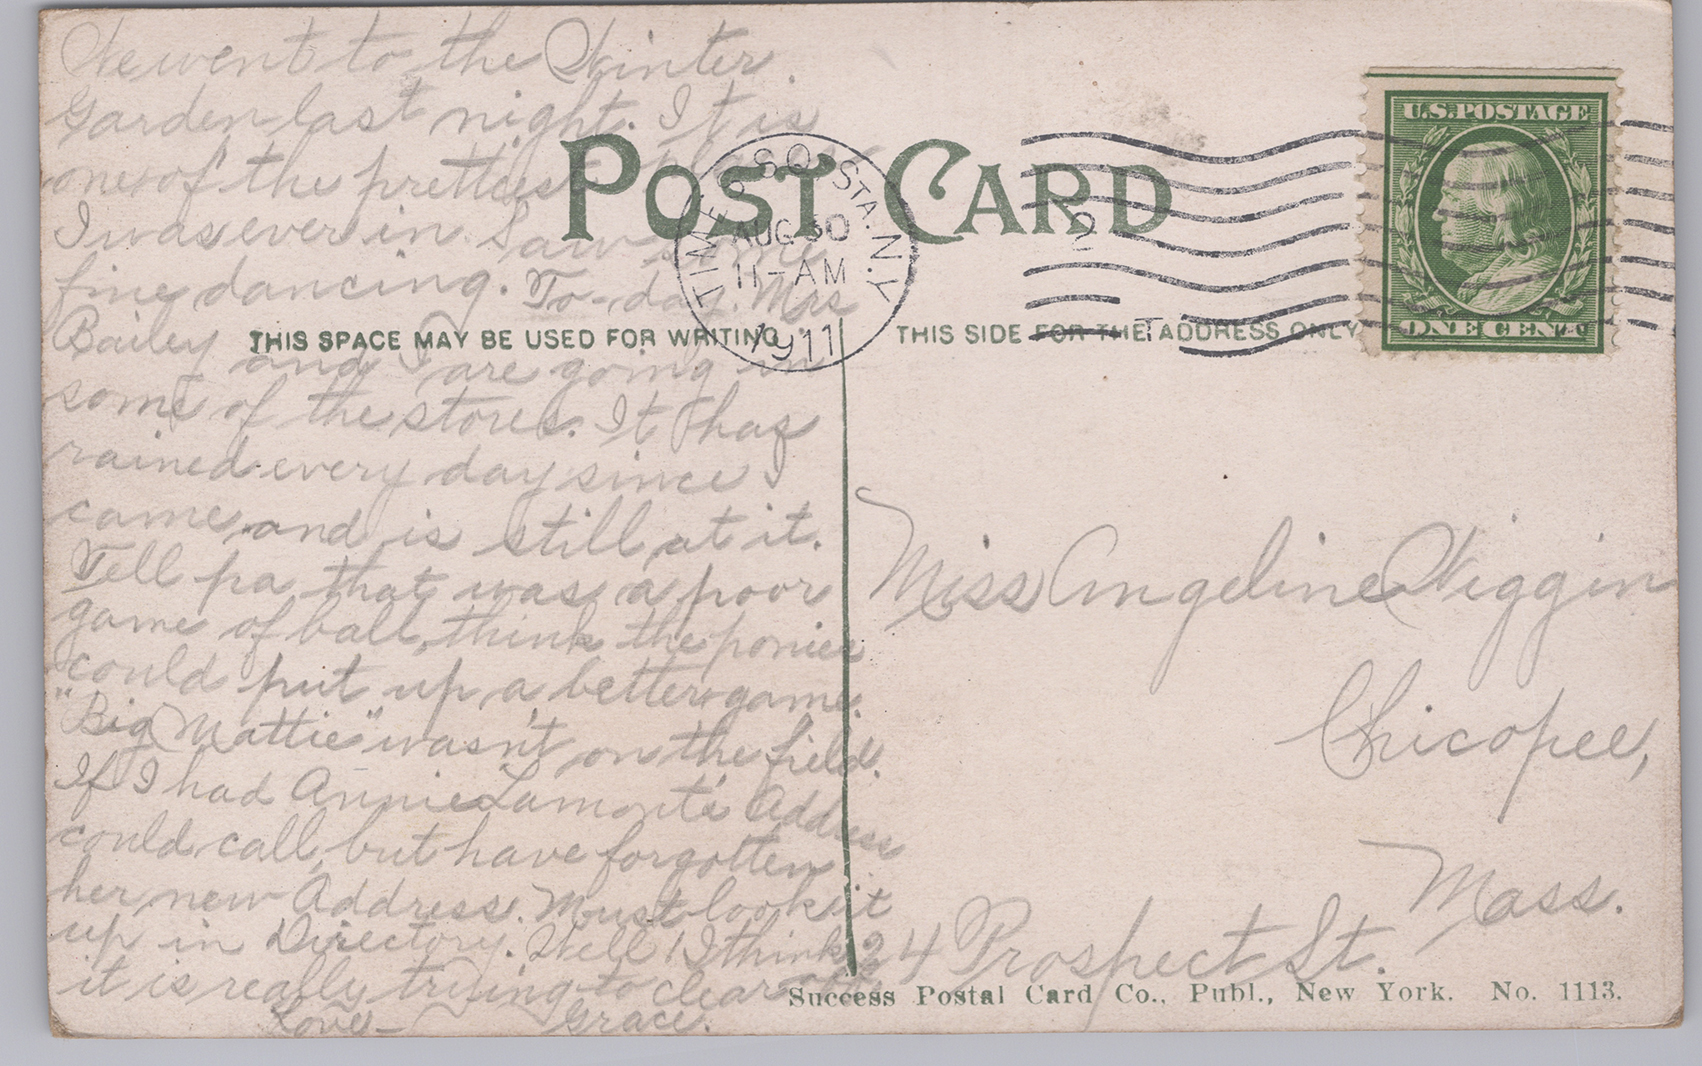 We went to the Winter
Garden last night. It is
one of the prettiest places
I was ever in. Saw some
fine dancing. To-day Mrs
Bailey and I are going in
some of the stores. It has
rained every day since I
came, and is still at it.
Tell pa that was a poor
game of ball, think the ponies
could put up a better game.
"Big Mattie" wasn't on the field.
If I had Annie Lamont's Address
could call, but have forgotten
her new Address. Must look it
up in Directory. Well I think
it is really trying to clear off
Love - Grace.
POST CARD
THIS SPACE MAY BE USED FOR WRITING
THIS SIDE FOR THE ADDRESS ONLY
TIMES SQ. STA. N.Y.
AUG 30
11-AM
1911
2
U.S. POSTAGE
ONE CENT
Miss Angeline Wiggin
Chicopee,
Mass.
24 Prospect St.
Success Postal Card Co., Publ., New York. No. 1113.